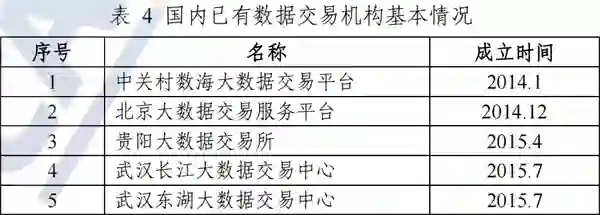 表 4 国内已有数据交易机构基本情况
序号 名称 成立时间
1 中关村数海大数据交易平台 2014.1
2 北京大数据交易服务平台 2014.12
3 贵阳大数据交易所 2015.4
4 武汉长江大数据交易中心 2015.7
5 武汉东湖大数据交易中心 2015.7